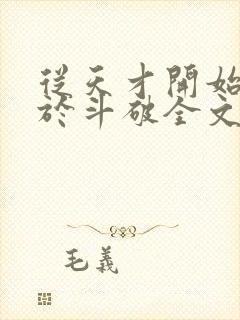 從天才開始
於斗破全文
毛義